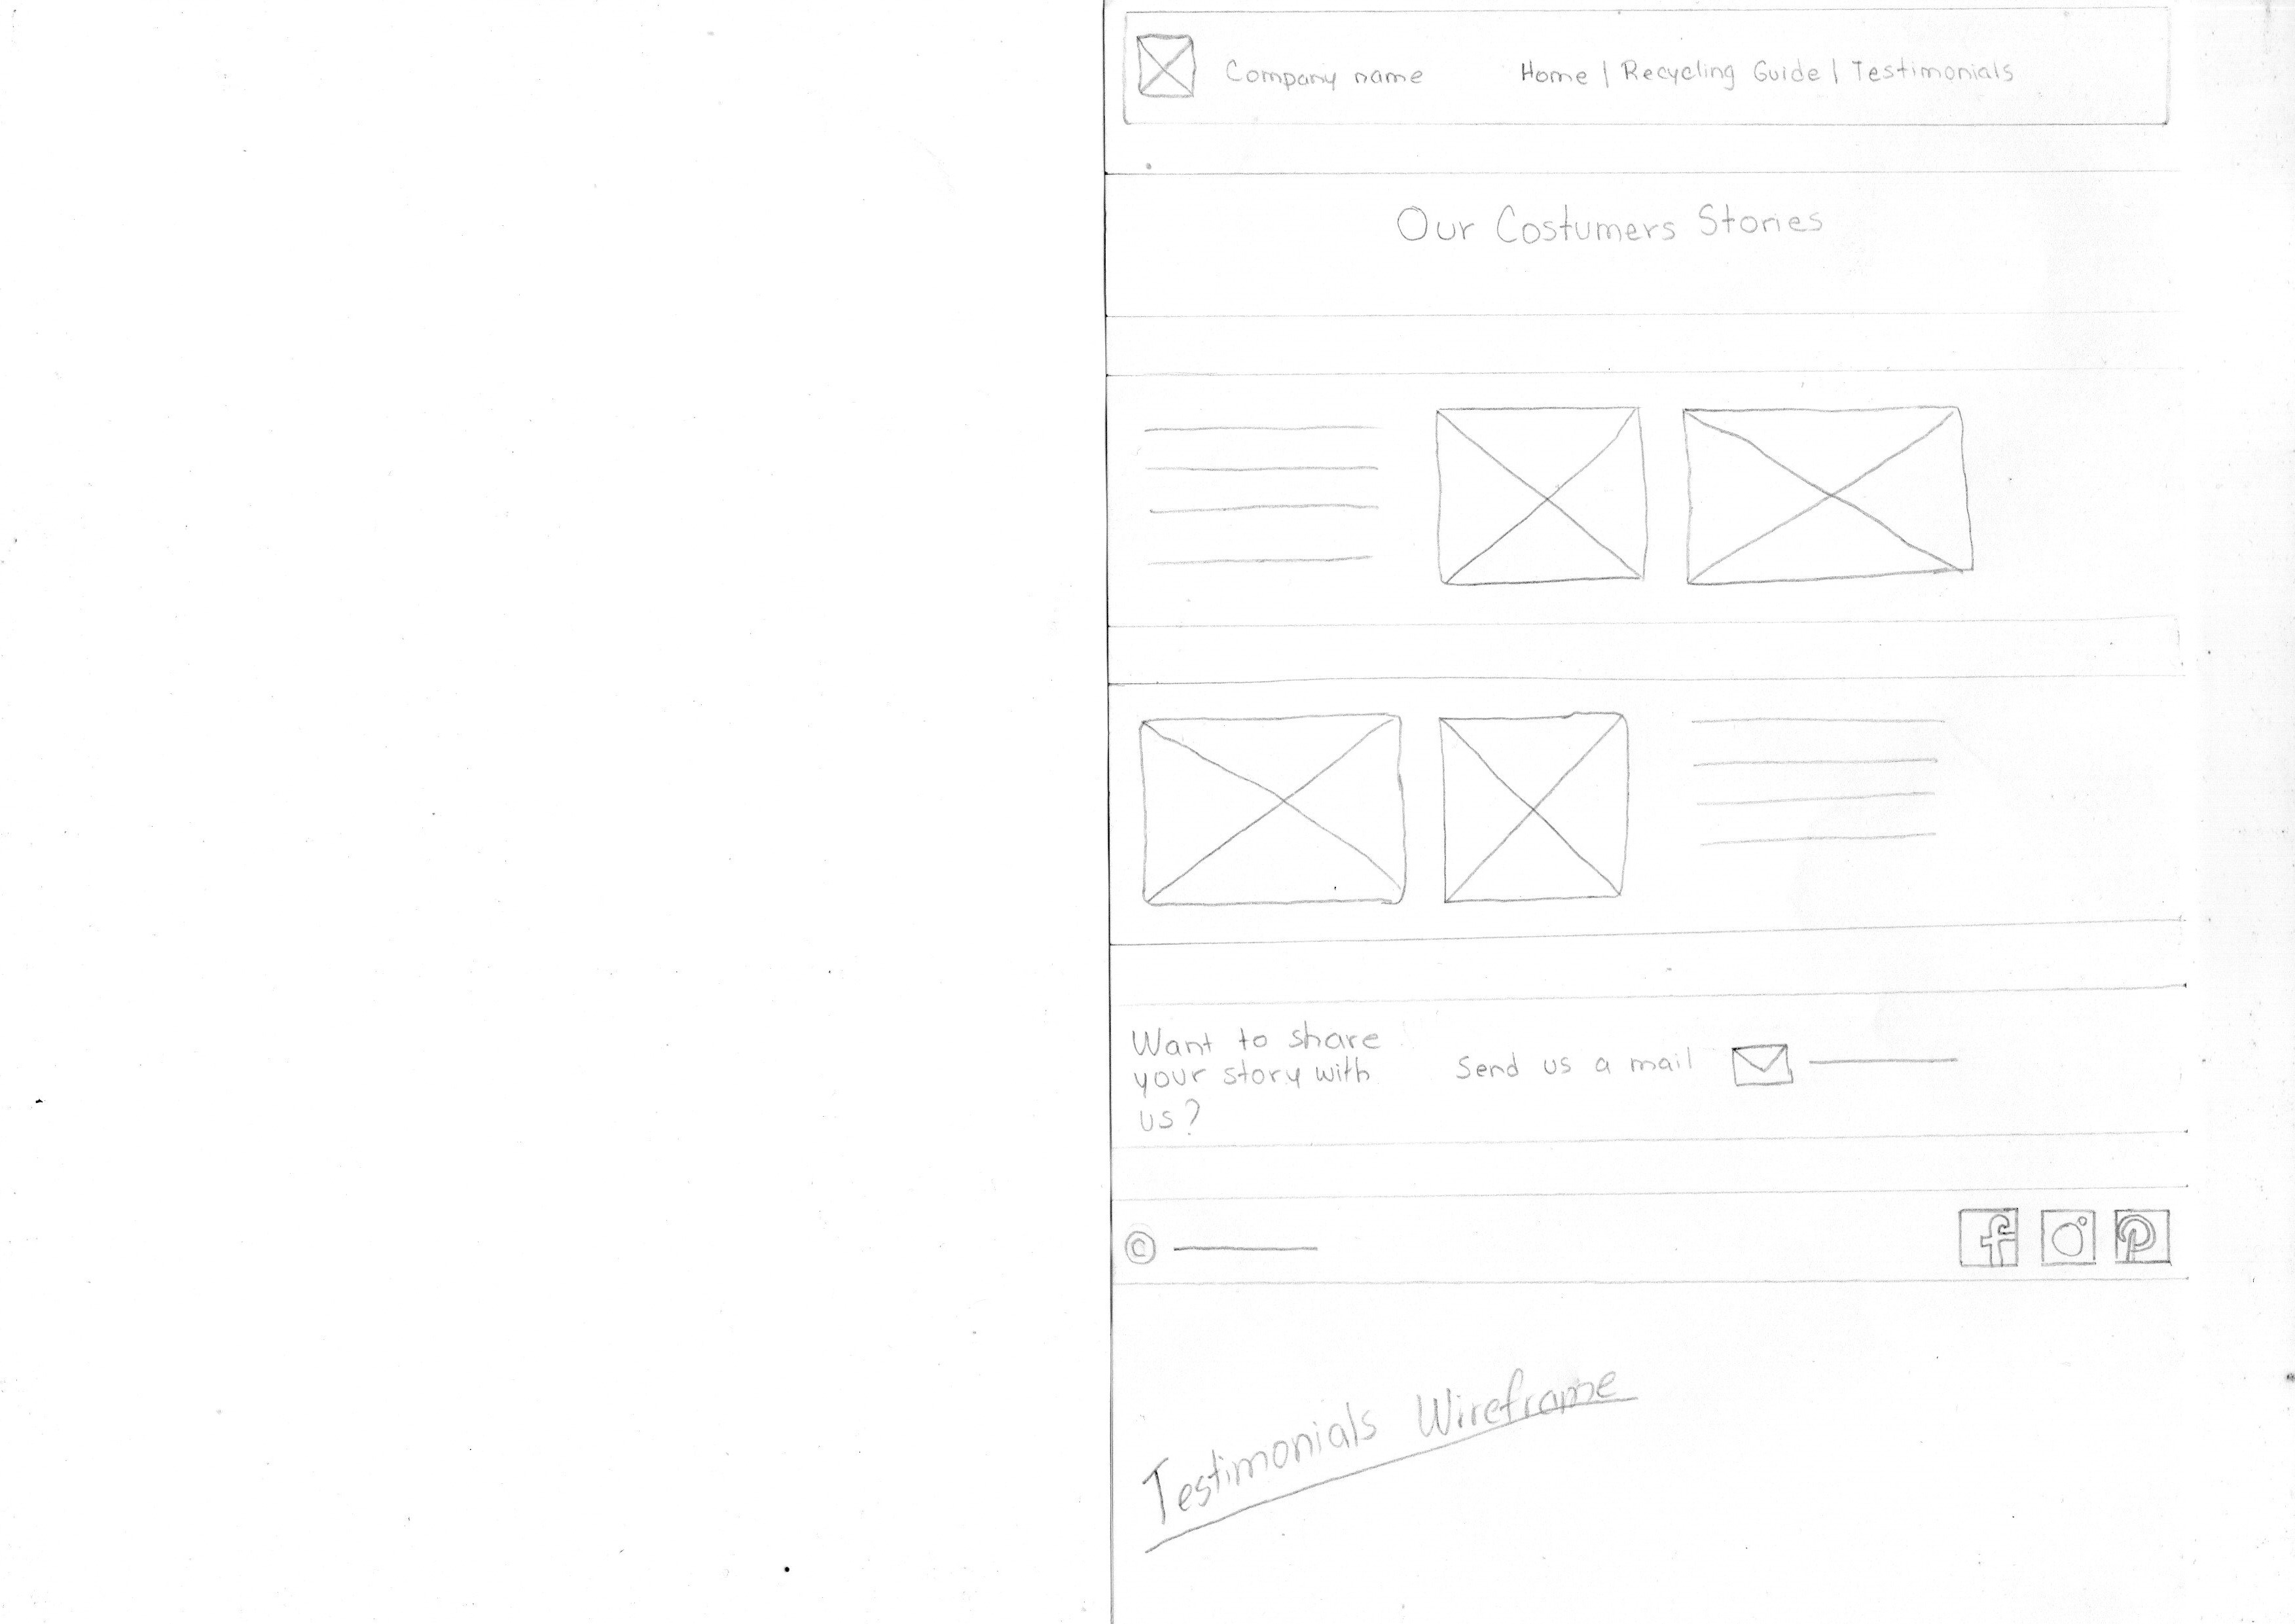 Company name
Home | Recycling Guide | Testimonials
Our Costumers Stories
Want to share
your story with
us?
Send us a mail
©
Testimonials Wireframe